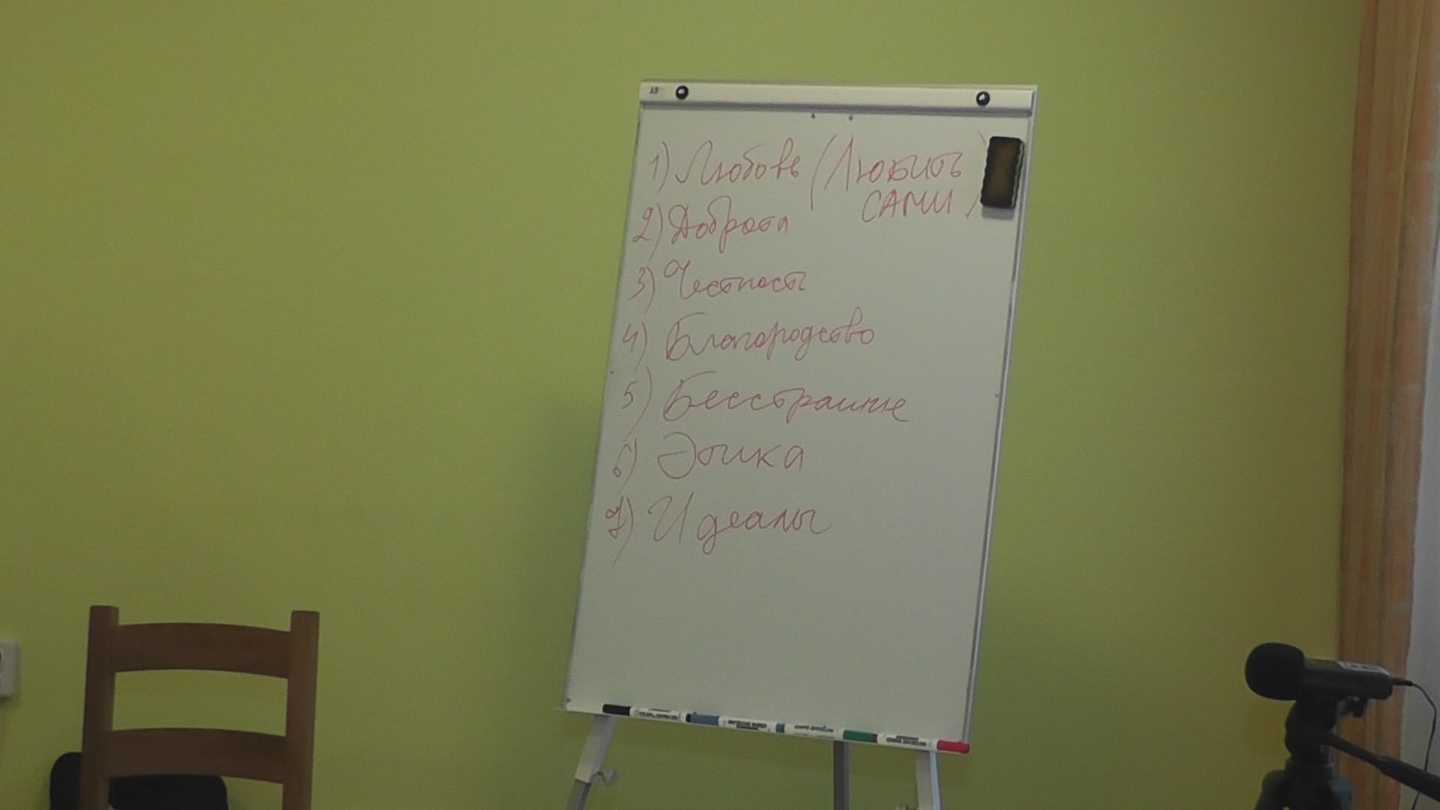 1) Любовь (Любить
САМИ)
2) Доброта
3) Честность
4) Благородство
5) Бесстрашие
6) Этика
7) Идеалы